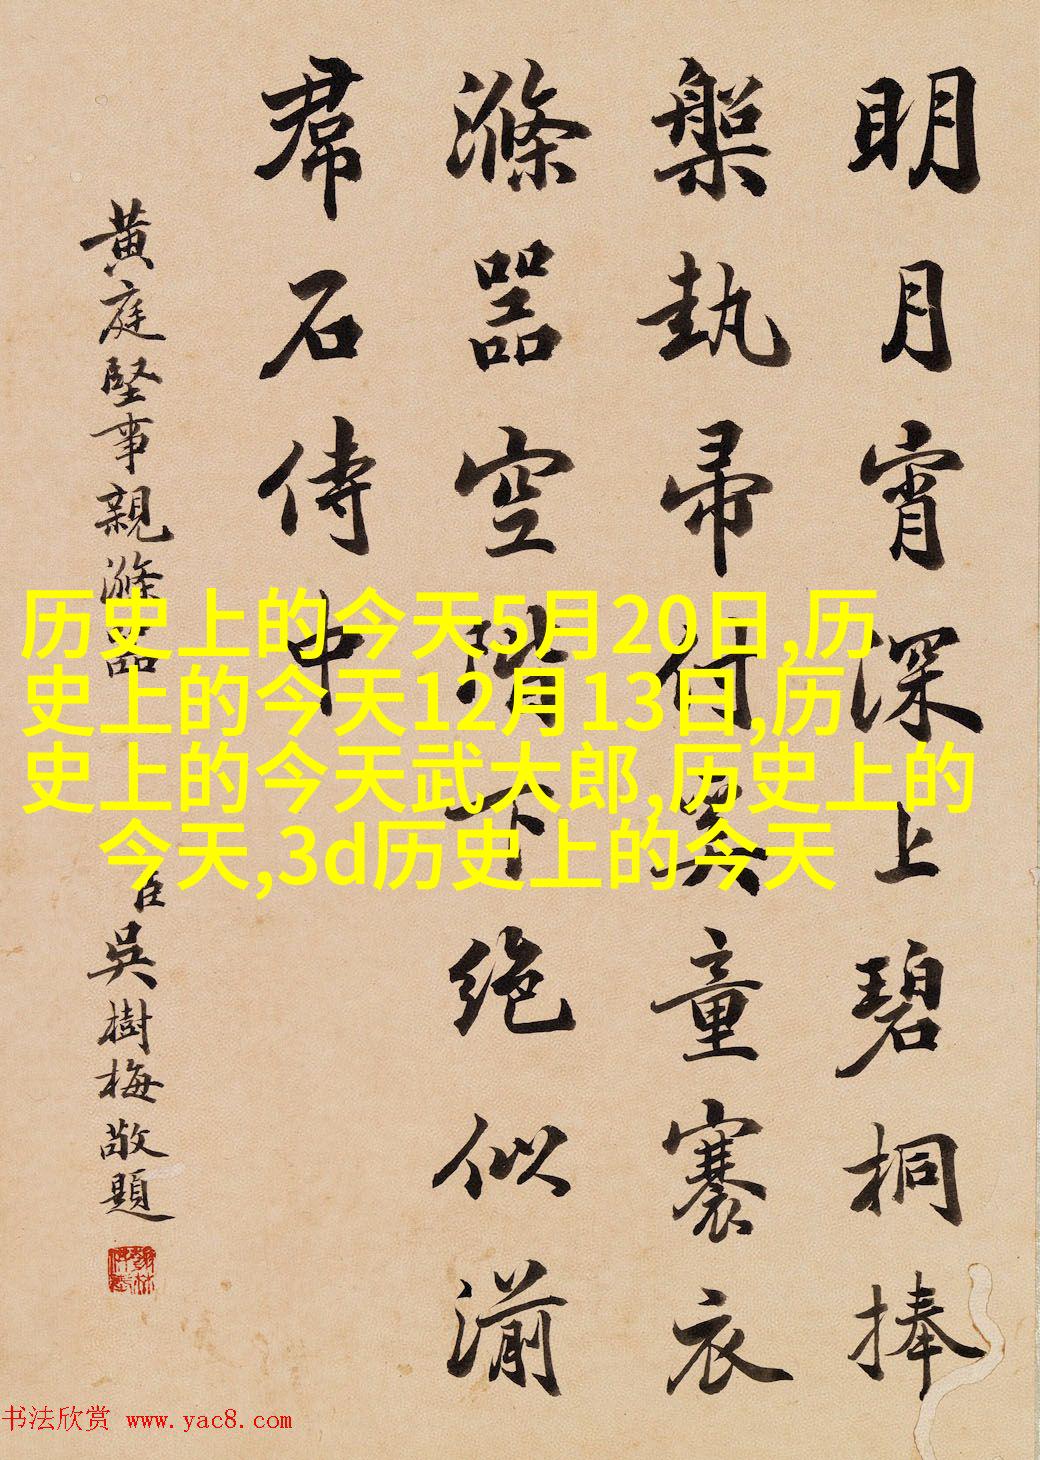 明月宵深上碧桐捧
槃執帚付奚童褰衣
滌器空階下絶似湔
帬石侍中
黃庭堅事親滌器
臣吳樹梅敬題
历史上的今天5月20日,历
史上的今天12月13日,历
史上的今天武大郎,历史上的
今天,3d历史上的今天
书法欣赏 www.yac8.com